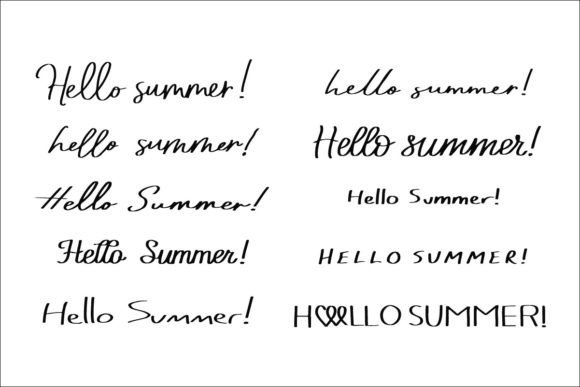 Hello summer!
hello summer!
Hello Summer!
Hello Summer!
Hello Summer!
hello summer!
Hello summer!
Hello Summer!
HELLO SUMMER!
HELLO SUMMER!